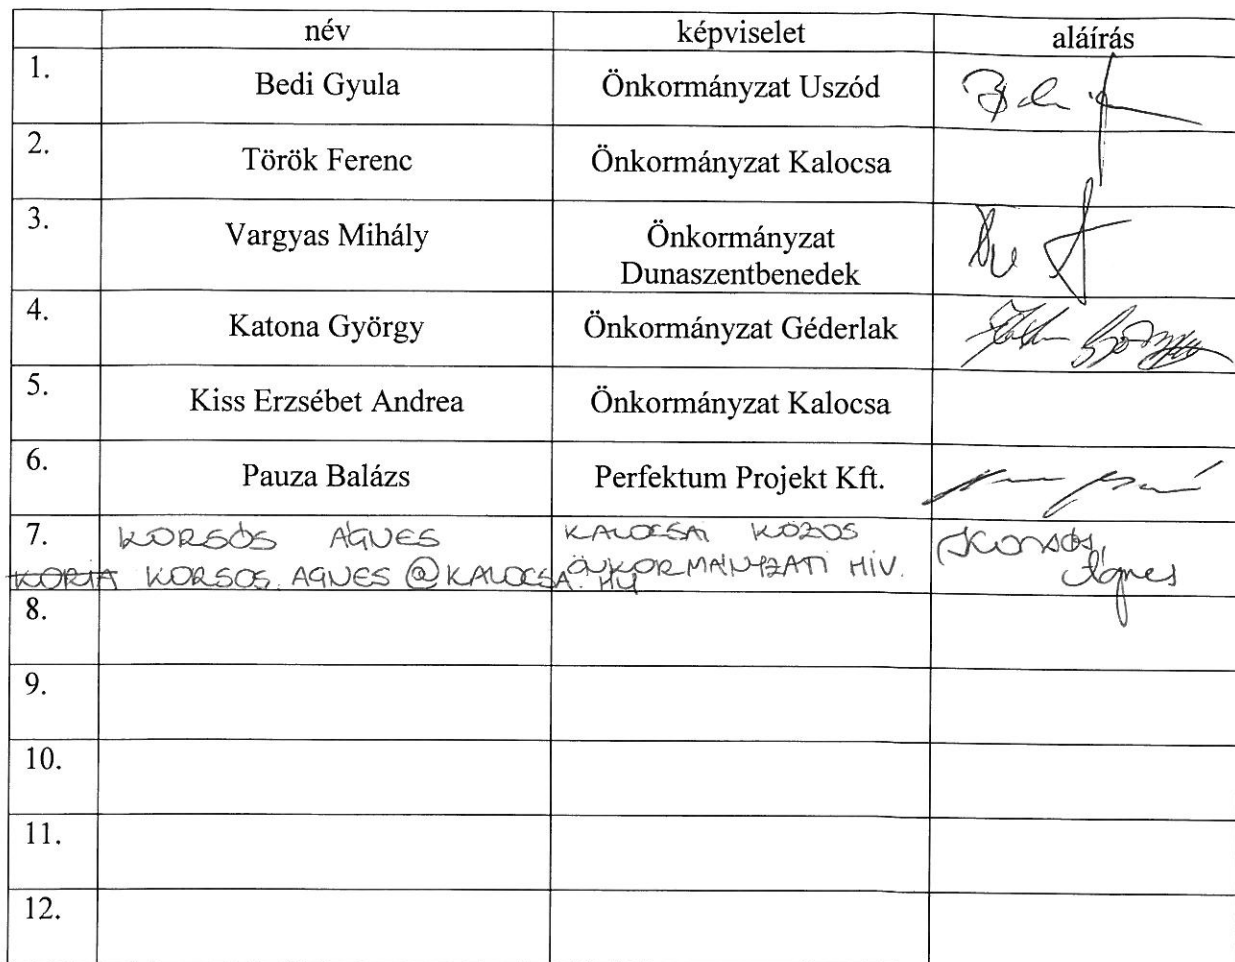 név képviselet aláírás
1. Bedi Gyula Önkormányzat Uszód
2. Török Ferenc Önkormányzat Kalocsa
3. Vargyas Mihály Önkormányzat
Dunaszentbenedek
4. Katona György Önkormányzat Géderlak
5. Kiss Erzsébet Andrea Önkormányzat Kalocsa
6. Pauza Balázs Perfektum Projekt Kft.
7. KORSÓS ÁGNES KALOCSAI KÖZÖS Korsós
KORSOS.AGNES@KALOCSA.HU ÖNKORMÁNYZATI HIV. Ágnes
8.
9.
10.
11.
12.